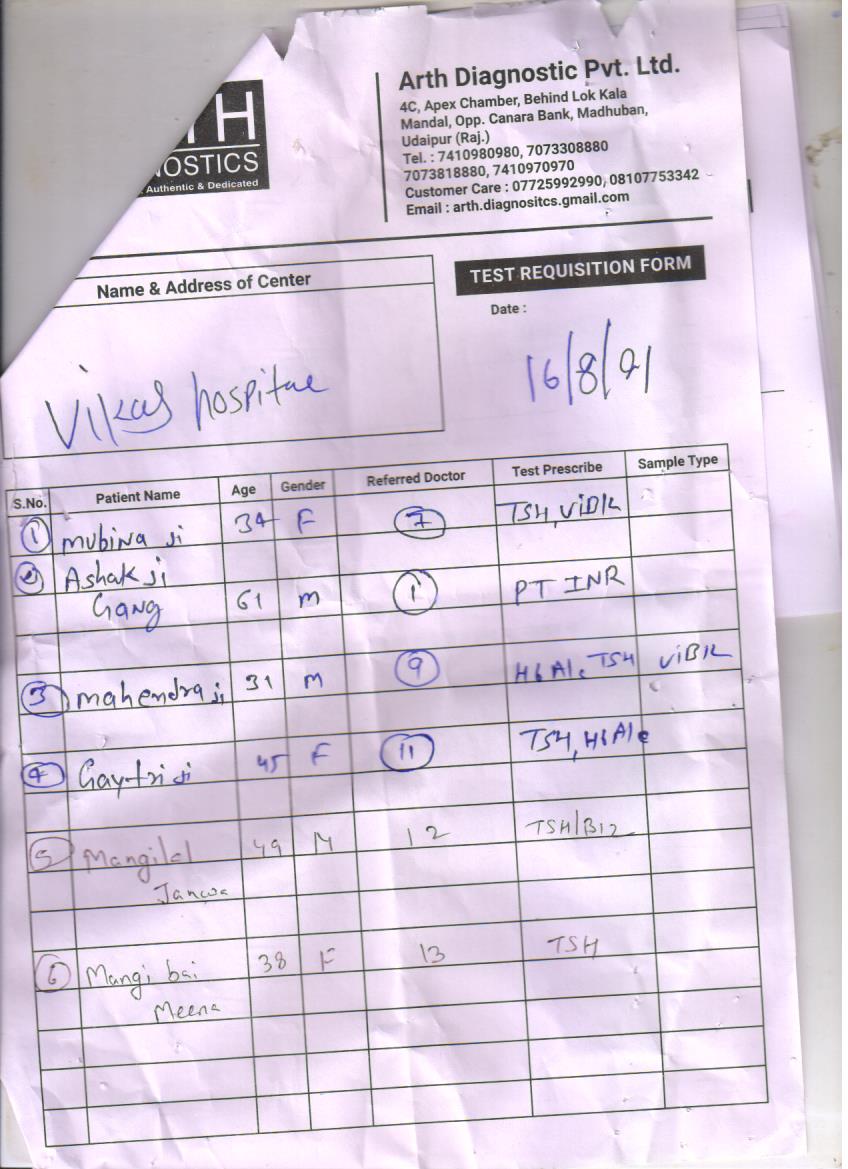 TH
NOSTICS
Authentic & Dedicated
Arth Diagnostic Pvt. Ltd.
4C, Apex Chamber, Behind Lok Kala
Mandal, Opp. Canara Bank, Madhuban,
Udaipur (Raj.)
Tel. : 7410980980, 7073308880
7073818880, 7410970970
Customer Care : 07725992990, 08107753342
Email : arth.diagnositcs.gmail.com
Name & Address of Center
TEST REQUISITION FORM
Date :
Vikas hospital
16/8/21
S.No. Patient Name Age Gender Referred Doctor Test Prescribe Sample Type
1 Mubina Ji 34 F 7 TSH, ViB12
2 Ashak Ji
Gang 61 M 1 PT INR
3 Mahendra Ji 31 M 9 HbA1c TSH ViB12
4 Gaytri Ji 45 F 11 TSH, HbA1c
5 Mangilal 49 M 12 TSH/B12
Janwa
6 Mangi bai 38 F 13 TSH
Meena